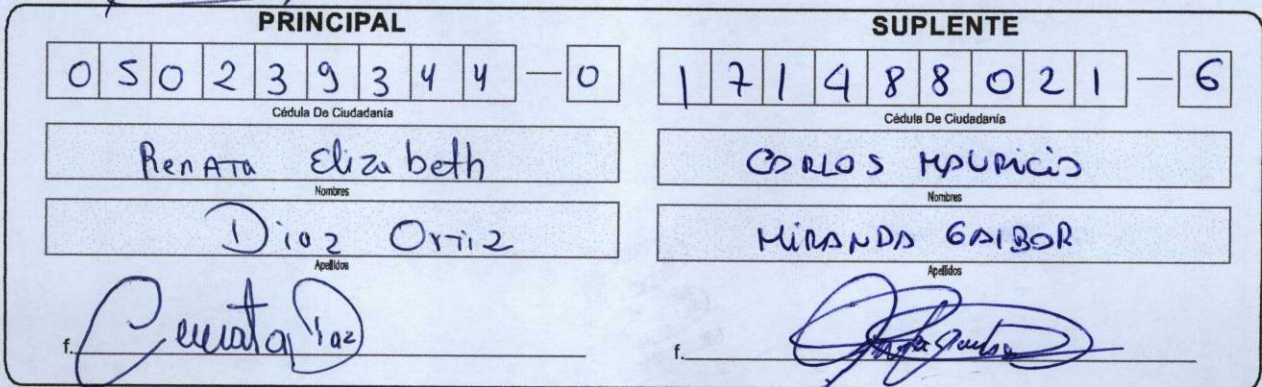 PRINCIPAL
050239344-0
Cédula De Ciudadanía
RenATa Elizabeth
Nombres
Diaz Ortiz
Apellidos
f. Renata Diaz
SUPLENTE
171488021-6
Cédula De Ciudadanía
CARLOS MAURICIO
Nombres
MIRANDA GAIBOR
Apellidos
f.